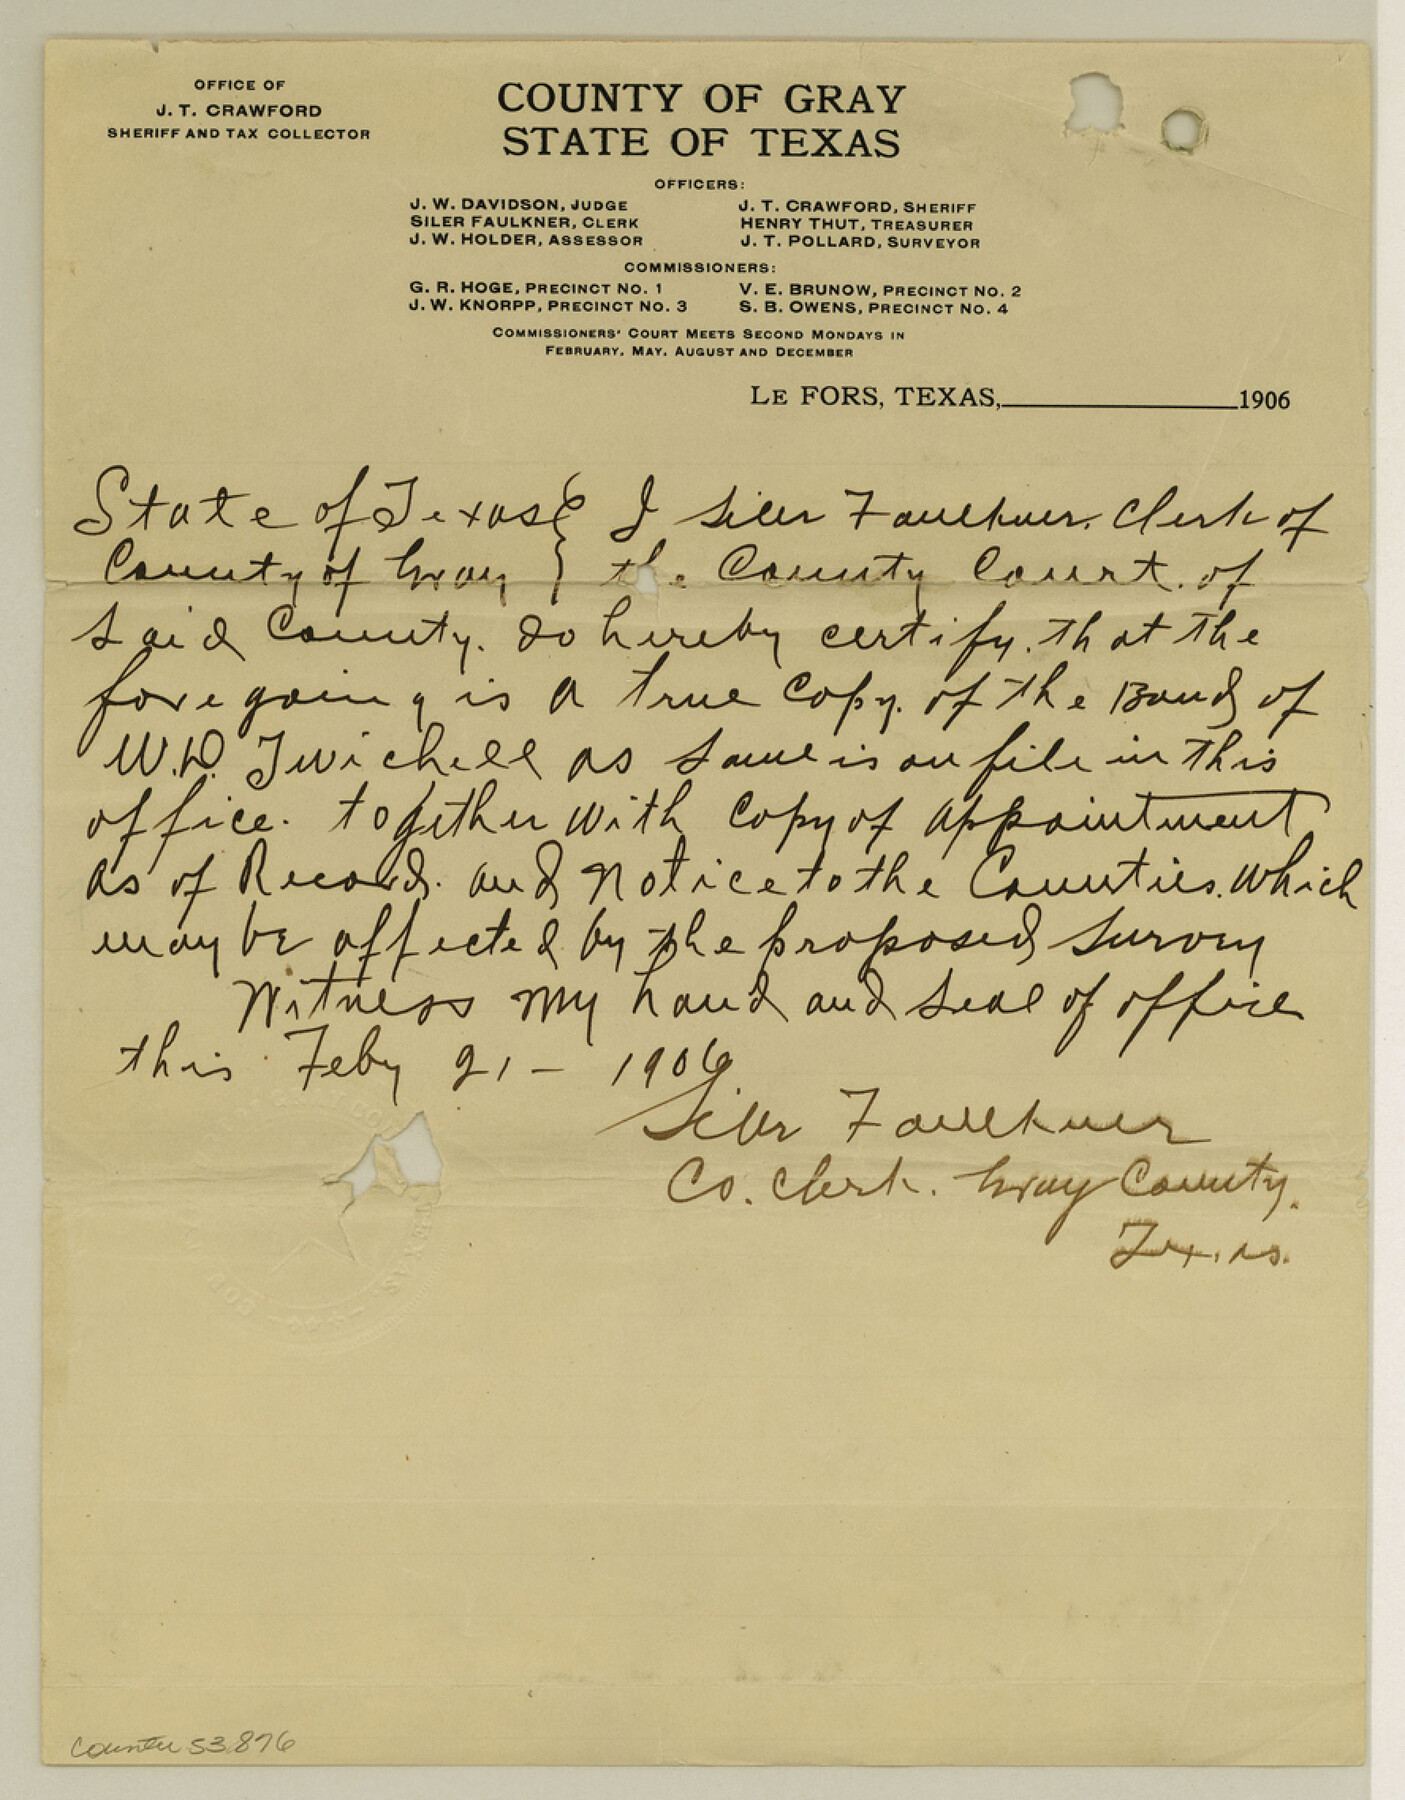 OFFICE OF
J. T. CRAWFORD
SHERIFF AND TAX COLLECTOR
COUNTY OF GRAY
STATE OF TEXAS
OFFICERS:
J. W. DAVIDSON, JUDGE J. T. CRAWFORD, SHERIFF
SILER FAULKNER, CLERK HENRY THUT, TREASURER
J. W. HOLDER, ASSESSOR J. T. POLLARD, SURVEYOR
COMMISSIONERS:
G. R. HOGE, PRECINCT NO. 1 V. E. BRUNOW, PRECINCT NO. 2
J. W. KNORPP, PRECINCT NO. 3 S. B. OWENS, PRECINCT NO. 4
COMMISSIONERS' COURT MEETS SECOND MONDAYS IN
FEBRUARY, MAY, AUGUST AND DECEMBER
LE FORS, TEXAS, 1906
State of Texas } I Siler Faulkner. Clerk of
County of Gray } the County Court. of
Said County. do hereby certify. that the
foregoing is a true Copy. of the Bond of
W.D. Twichell as same is on file in this
office. together with Copy of appointment
as of Record. and Notice to the Counties. which
may be affected by the proposed Survey
Witness my hand and Seal of office
this Feby 21 - 1906.
Siler Faulkner
Co. Clerk. Gray County.
Texas.
TEXAS.
counter 53876